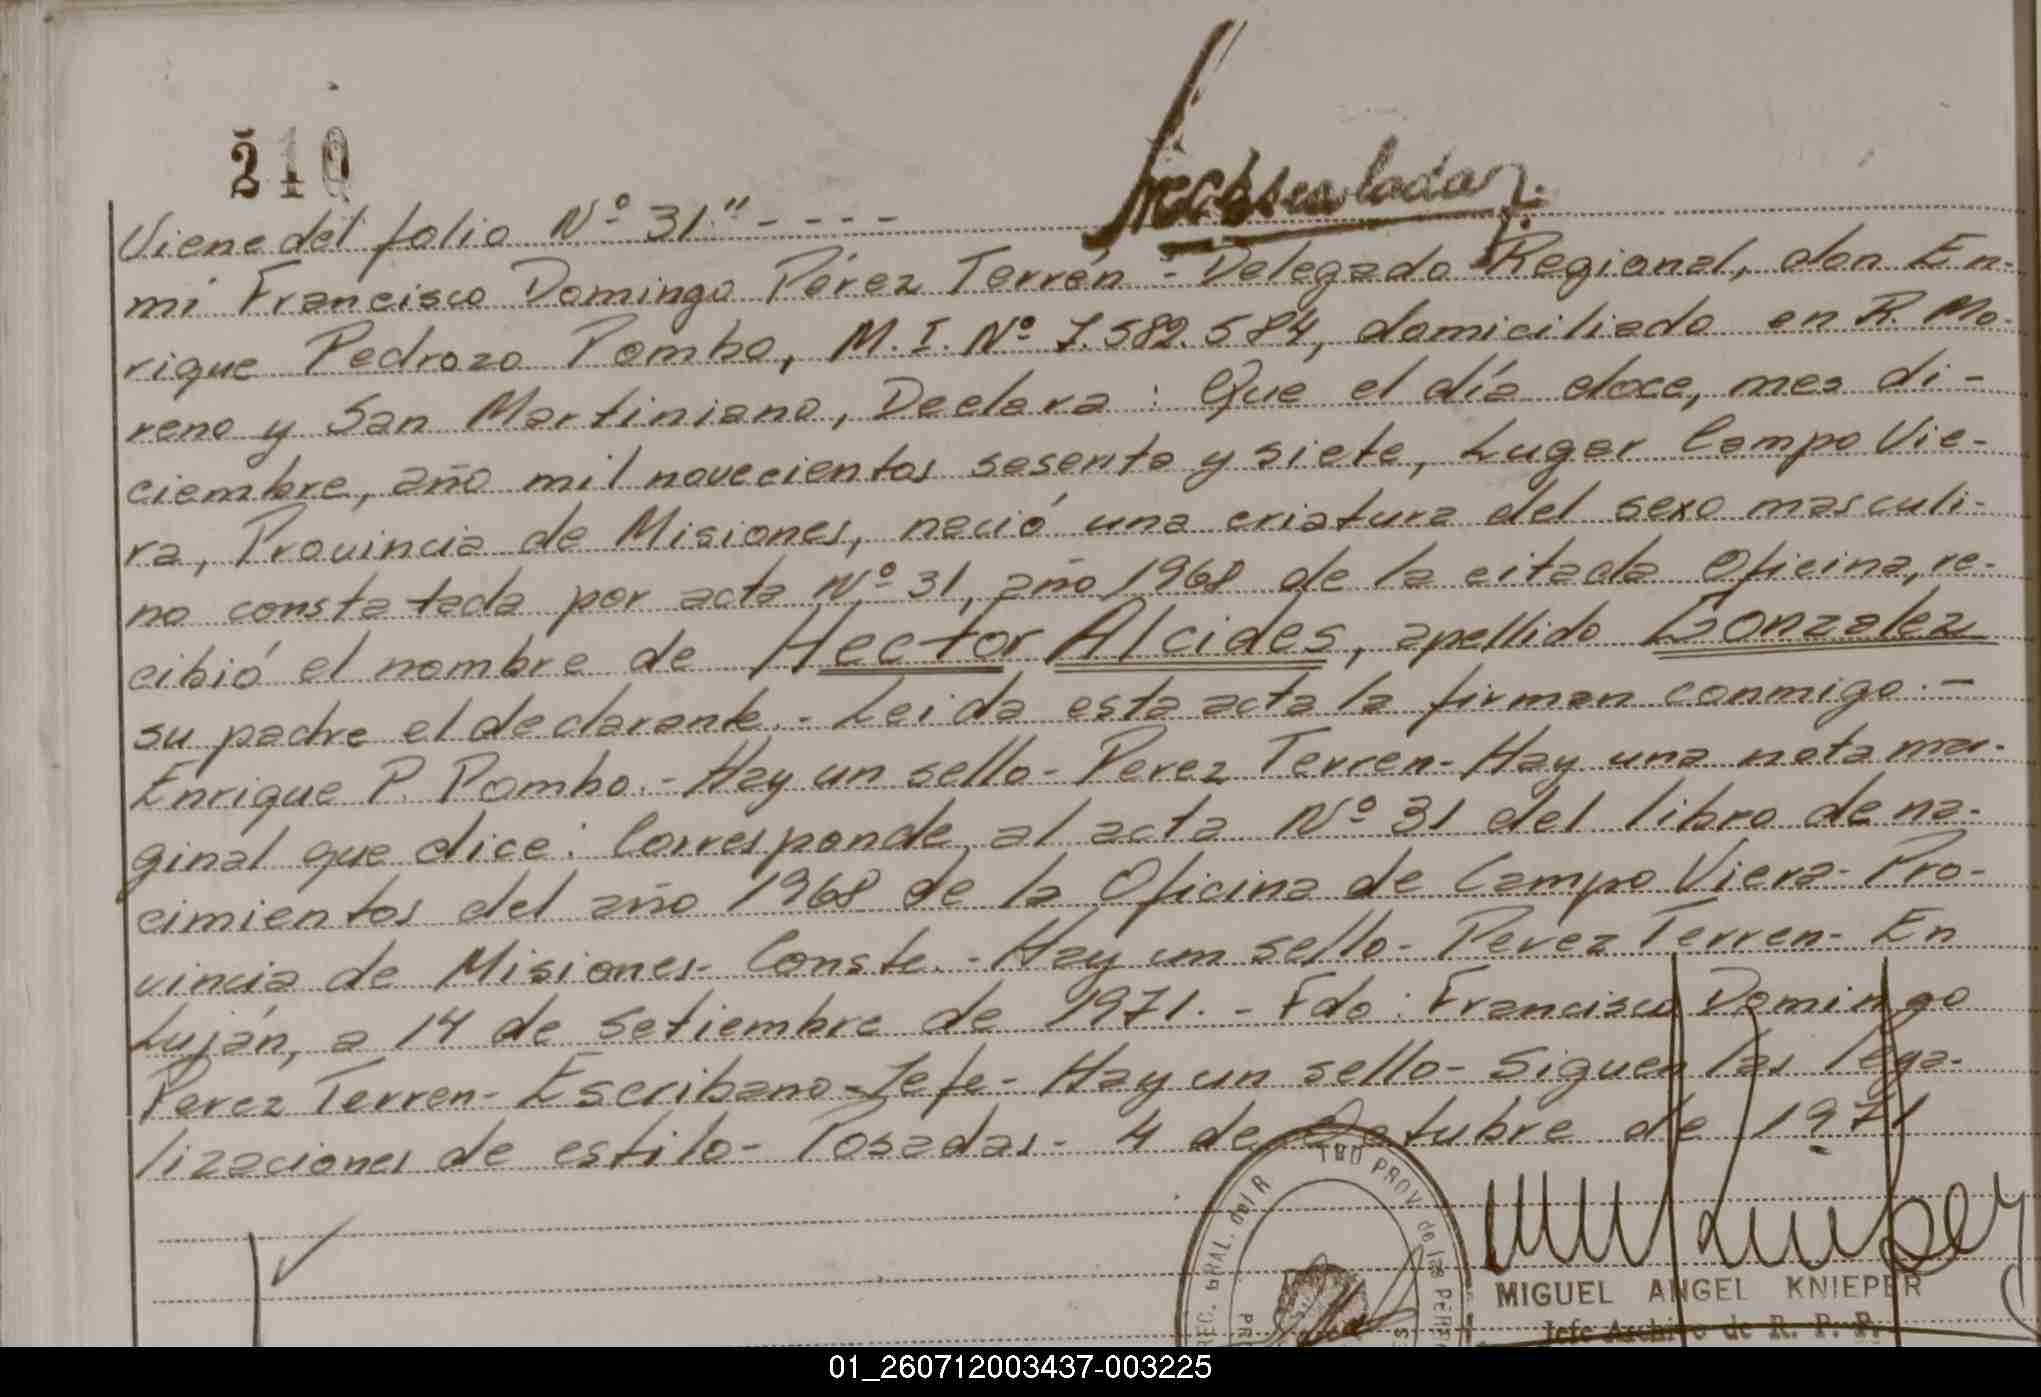 210
Inobsculadas.
Viene del folio Nº 31" - - - -
mí Francisco Domingo Pérez Terrén - Delegado Regional, don En-
rique Pedrozo Pombo, M. I. Nº 7.582.584, domiciliado en R. Mo-
reno y San Martiniano, Declara: Que el día doce, mes di-
ciembre, año mil novecientos sesenta y siete, Lugar Campo Vie-
ra, Provincia de Misiones, nació una criatura del sexo masculi-
no constatada por acta Nº 31, año 1968 de la citada Oficina, re-
cibió el nombre de Hector Alcides, apellido Gonzalez
su padre el declarante.- Leida esta acta la firman conmigo.-
Enrique P. Pombo.- Hay un sello- Perez Terren- Hay una nota mar-
ginal que dice: Corresponde al acta Nº 31 del libro de na-
cimientos del año 1968 de la Oficina de Campo Viera- Pro-
vincia de Misiones- Conste.- Hay un sello- Perez Terren- En
Luján, a 14 de setiembre de 1971.- Fdo: Francisco Domingo
Perez Terren- Escribano-Jefe- Hay un sello- Siguen las lega-
lizaciones de estilo- Posadas- 4 de Octubre de 1971
REC. GRAL. del R
PROV. de las PER
MIGUEL ANGEL KNIEPER
Jefe Archivo de R. P. P.
01_260712003437-003225